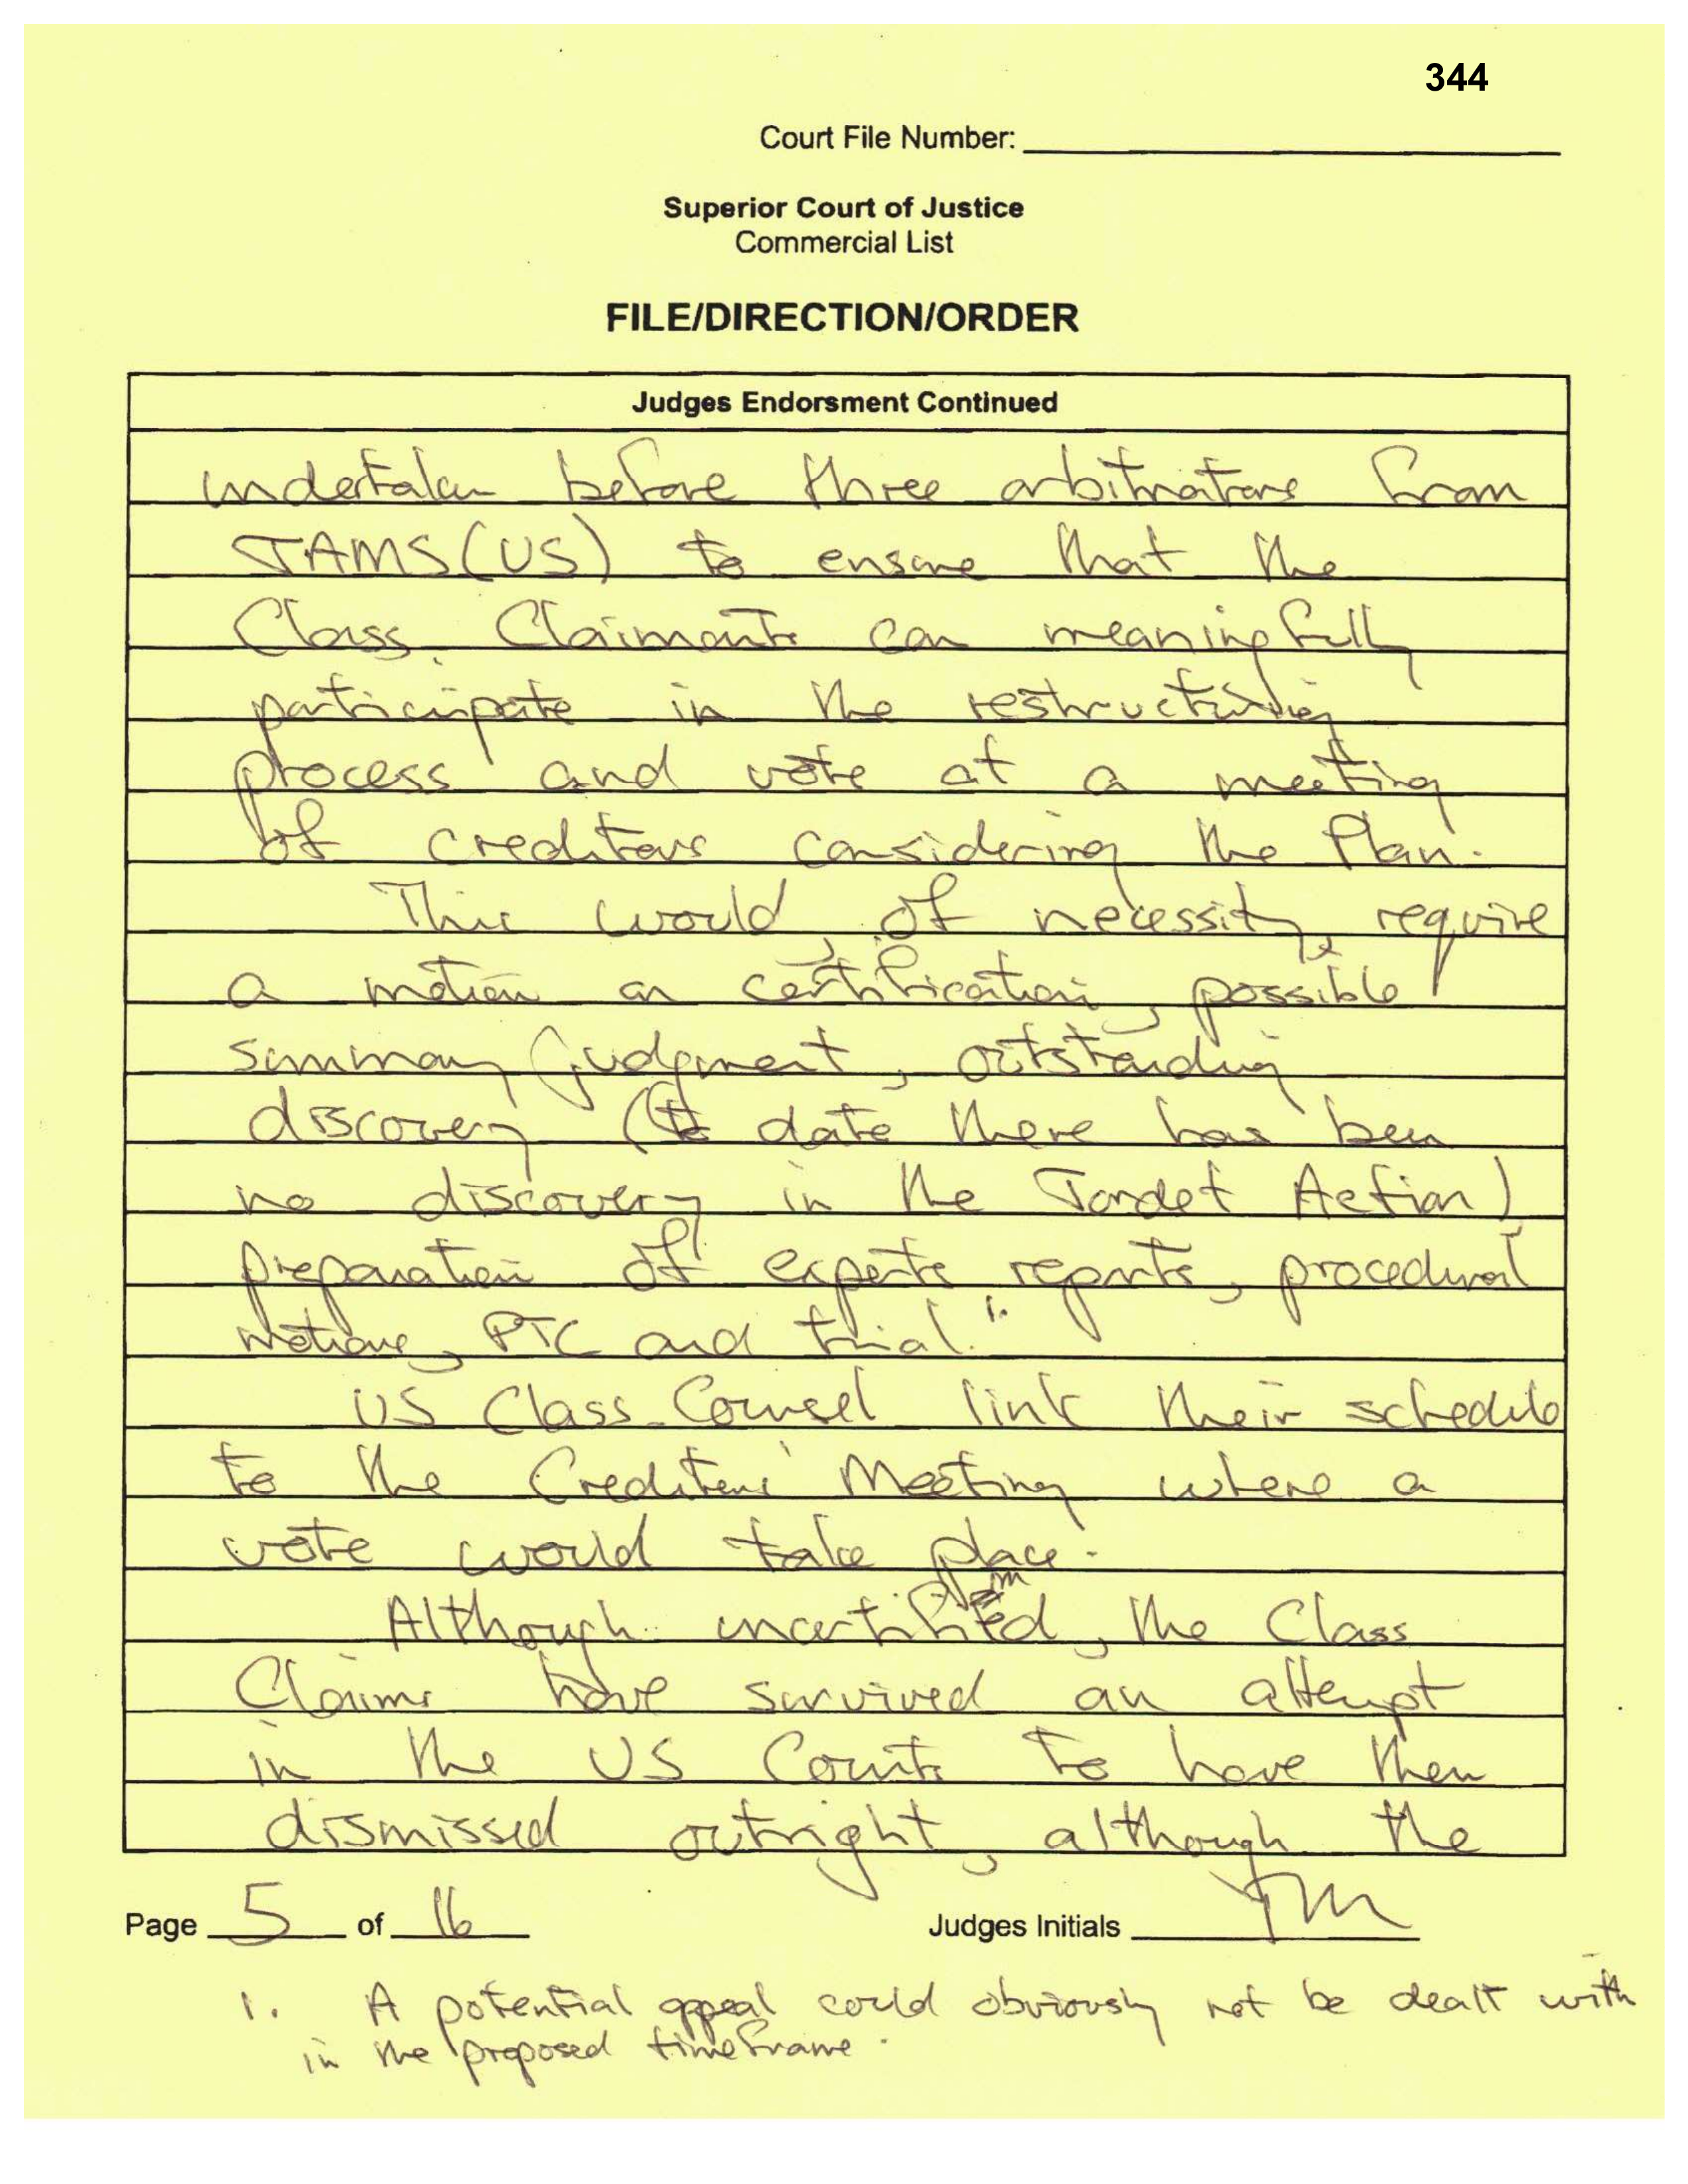 344
Court File Number:
Superior Court of Justice
Commercial List
FILE/DIRECTION/ORDER
Judges Endorsment Continued
undertaken before three arbitrators from
JAMS (US) to ensure that the
Class Claimants can meaningfully
participate in the restructuring
process and vote at a meeting
of creditors considering the Plan.
This would, of necessity, require
a motion on certification, possible
summary judgment, outstanding
discovery (to date there has been
no discovery in the Tordet Action)
preparation of experts reports, procedural
motions, PTC and trial. 1.
US Class Counsel link their schedule
to the Creditors' Meeting where a
vote would take place.
Although uncertified, the Class
Claims have survived an attempt
in the US Courts to have them
dismissed outright, although the
Page 5 of 16
Judges Initials
1. A potential appeal could obviously not be dealt with
in the proposed timeframe.